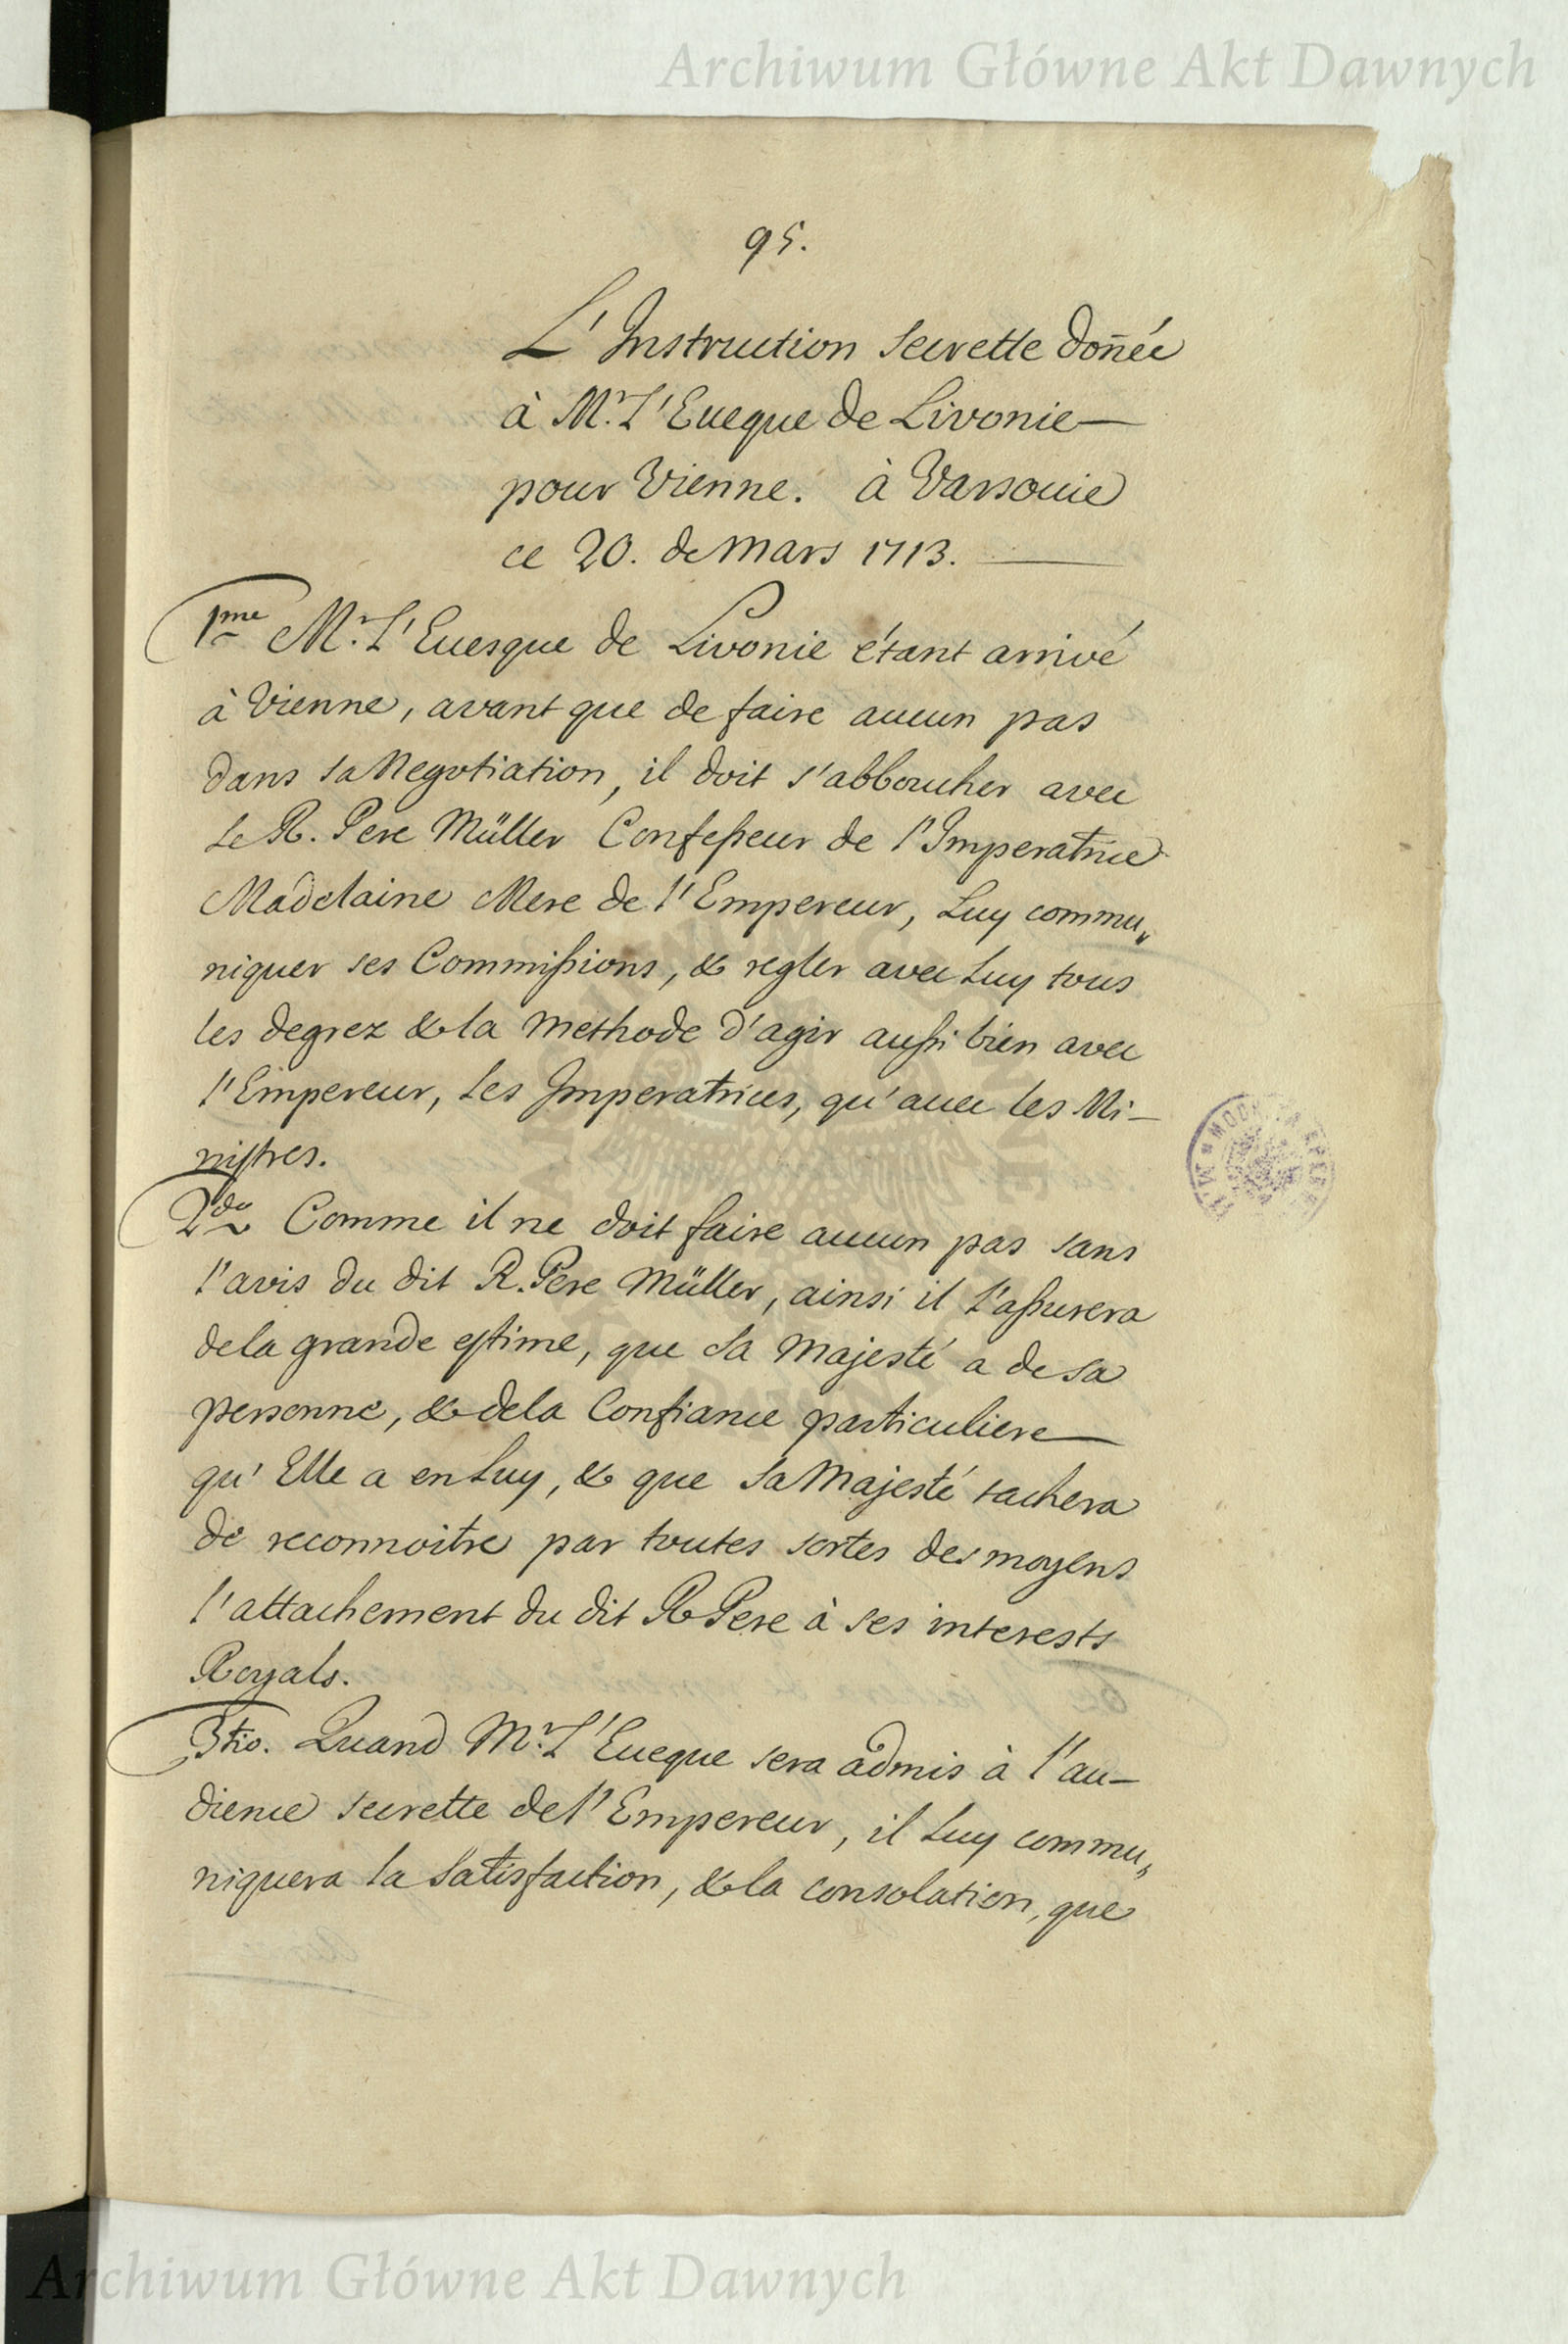 Archiwum Główne Akt Dawnych
95.
L'Instruction secrette doñée
à Mr. L'Eueque de Livonie
pour Vienne. à Varsouie
ce 20. de Mars 1713.
1me Mr. L'Euesque de Livonie étant arrivé
à Vienne, avant que de faire aucun pas
dans sa Negotiation, il doit s'abboucher avec
le R. Pere Müller Confesseur de l'Imperatrice
Madelaine Mere de l'Empereur, Luy commu„
niquer ses Commissions, & regler avec Luy tous
les degrez & la methode d'agir aussi bien avec
l'Empereur, les Imperatrices, qu'auec les Mi-
nistres.
2do Comme il ne doit faire aucun pas sans
l'avis du dit R. Pere Müller, ainsi il l'assurera
de la grande estime, que sa Majesté a de sa
personne, & de la Confiance particuliere
qu'Elle a en Luy, & que sa Majesté tachera
de reconnoitre par toutes sortes des moyens
l'attachement du dit R Pere à ses interests
Royals.
3tio. Quand Mr. L'Eueque sera admis à l'au-
dience secrette de l'Empereur, il Luy commu„
niquera la satisfaction, & la consolation, que
Archiwum Główne Akt Dawnych